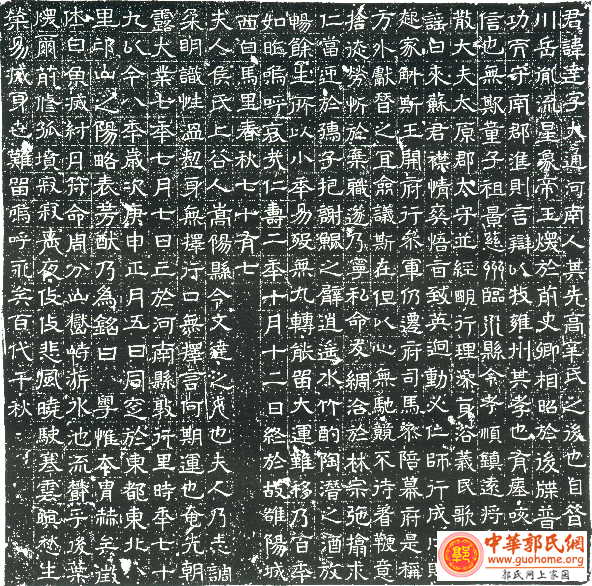 君諱達字大通河南人其先高辛氏之後也自發
川岳胤流星象帝王煥於前史卿相昭於後牒晉
功宗守南郡進則言辯以牧雍州其孝也育塵咳
信也無欺童子祖景州臨川縣令孝順鎮遠將
散大夫太原郡太守並經明行理深貞洛義民歌
謡白來蘇君襟情英悟言致英迥動必仁師行成
起家斛斯王開府行參軍仍遷府司馬參陪幕府是稱
方外獻替之宜僉議斯在但以心無馳競不待意
捨途勞忻於棄職遂乃寧私命友綢洽於林宗弛擔求
仁當逆於孺子把謝鯤之臂逍遥水竹酌陶潛之酒放
暢餘生所以小年易殁無九轉能留大運雖移乃百年
如臨嗚呼哀哉仁壽二年十月十二日終於故雒陽城
西白馬里春秋七十有七
夫人侯氏上谷人嵩陽縣令文達之也夫人乃志調
柔明識性温懃身無擇行口無擇言何期運也奄先朝
露大業七年七月七日亡於河南縣敦行里時年七十
九以今八年歲次庚申正月五日同窆於東都東北
里邙山之陽略表芳猷乃為銘曰 粤惟本胄赫矣澂
休白魚滅紂丹符命周分山嶽峙析水池流欝乎後葉
煥爾前脩孤墳寂寂長夜悠悠悲風曉駛寒雲暝愁生
榮易滅身世難留嗚呼永矣百代千秋
中華郭氏網
www.guohome.org
郭氏網上家園